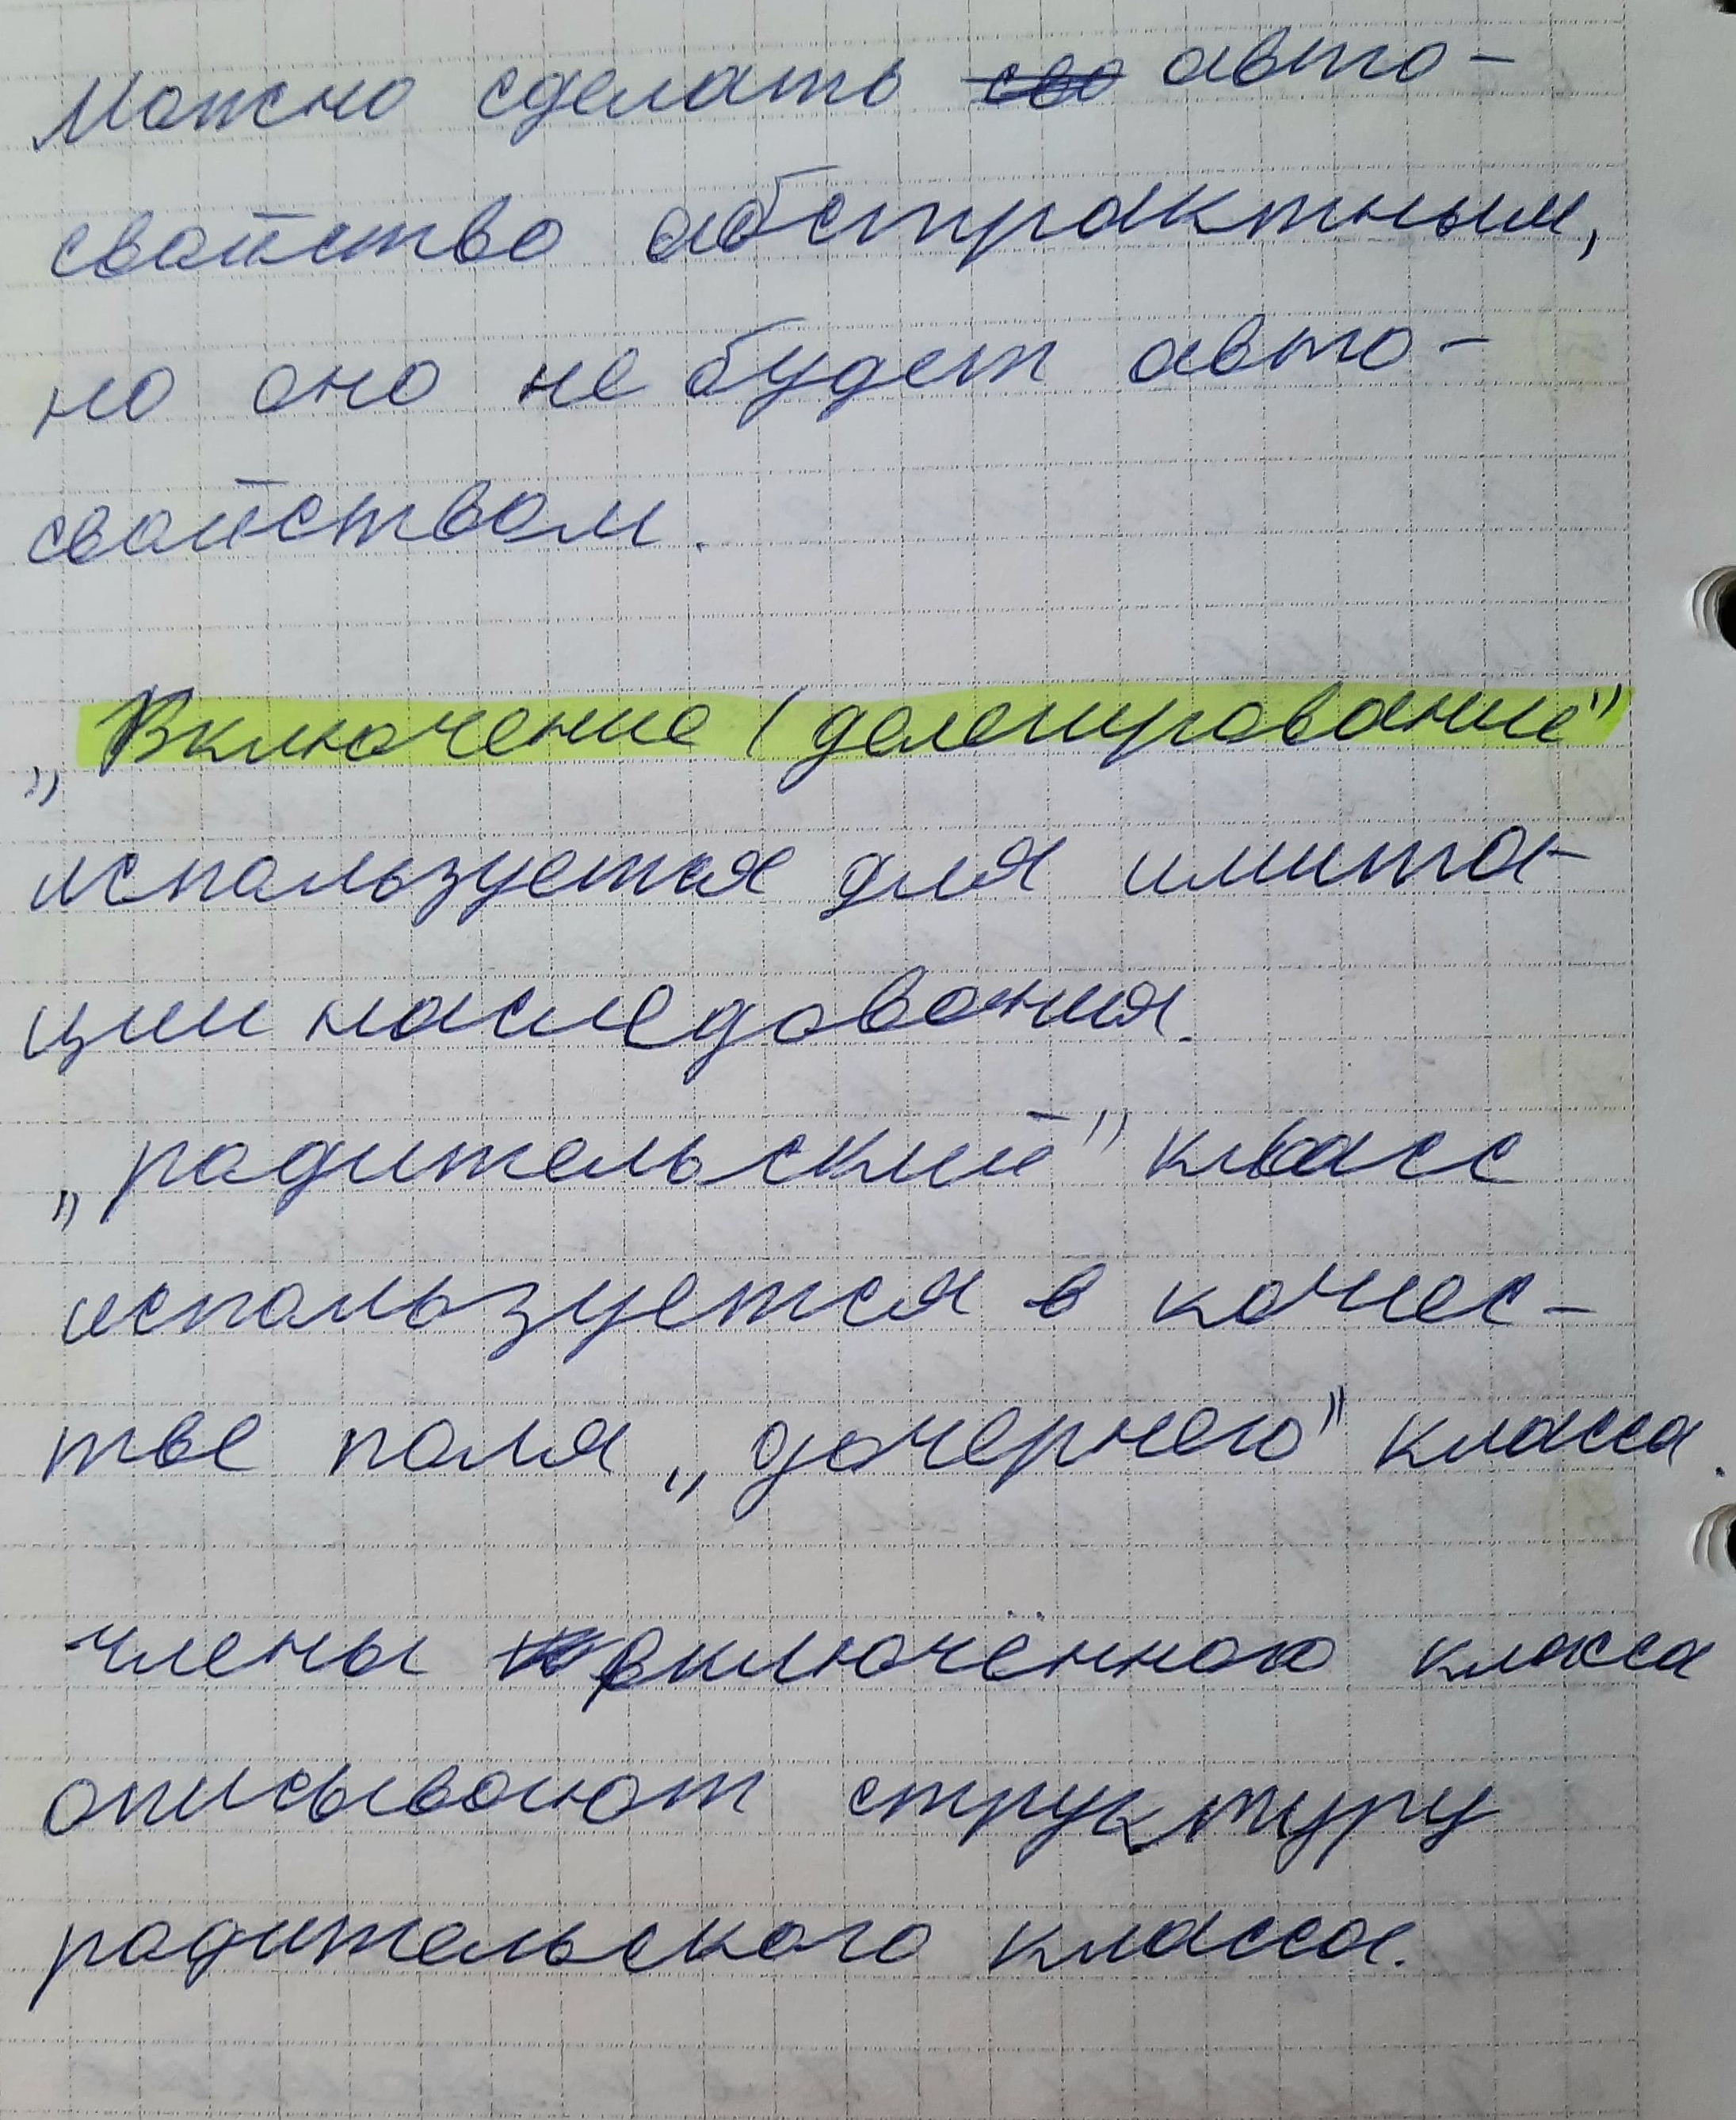 Можно сделать авто-
свойство абстрактным,
но оно не будет авто-
свойством.
„Включение / делегирование"
используется для имита-
ции наследования.
„родительский" класс
используется в качес-
тве поля „дочернего" класса.
члены включённого класса
описывают структуру
родительского класса.